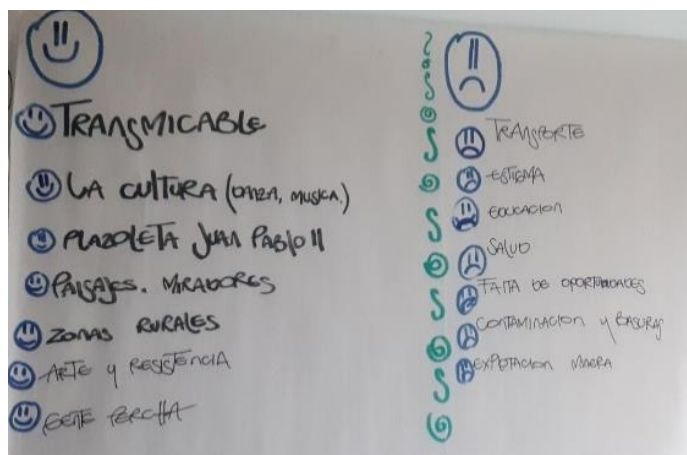 TRANSMICABLE
LA CULTURA (DANZA, MUSICA.)
PLAZOLETA JUAN PABLO II
PAISAJES. MIRADORES
ZONAS RURALES
ARTE y RESISTENCIA
GENTE PERCHA
TRANSPORTE
ESTIGMA
EDUCACION
SALUD
FALTA DE OPORTUNIDADES
CONTAMINACION y BASURAS
EXPLOTACION MINERA